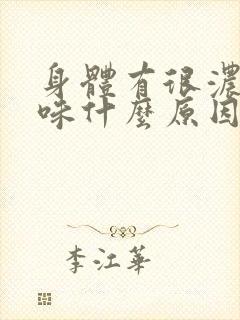 身體有很濃
味什麼原因
李江華